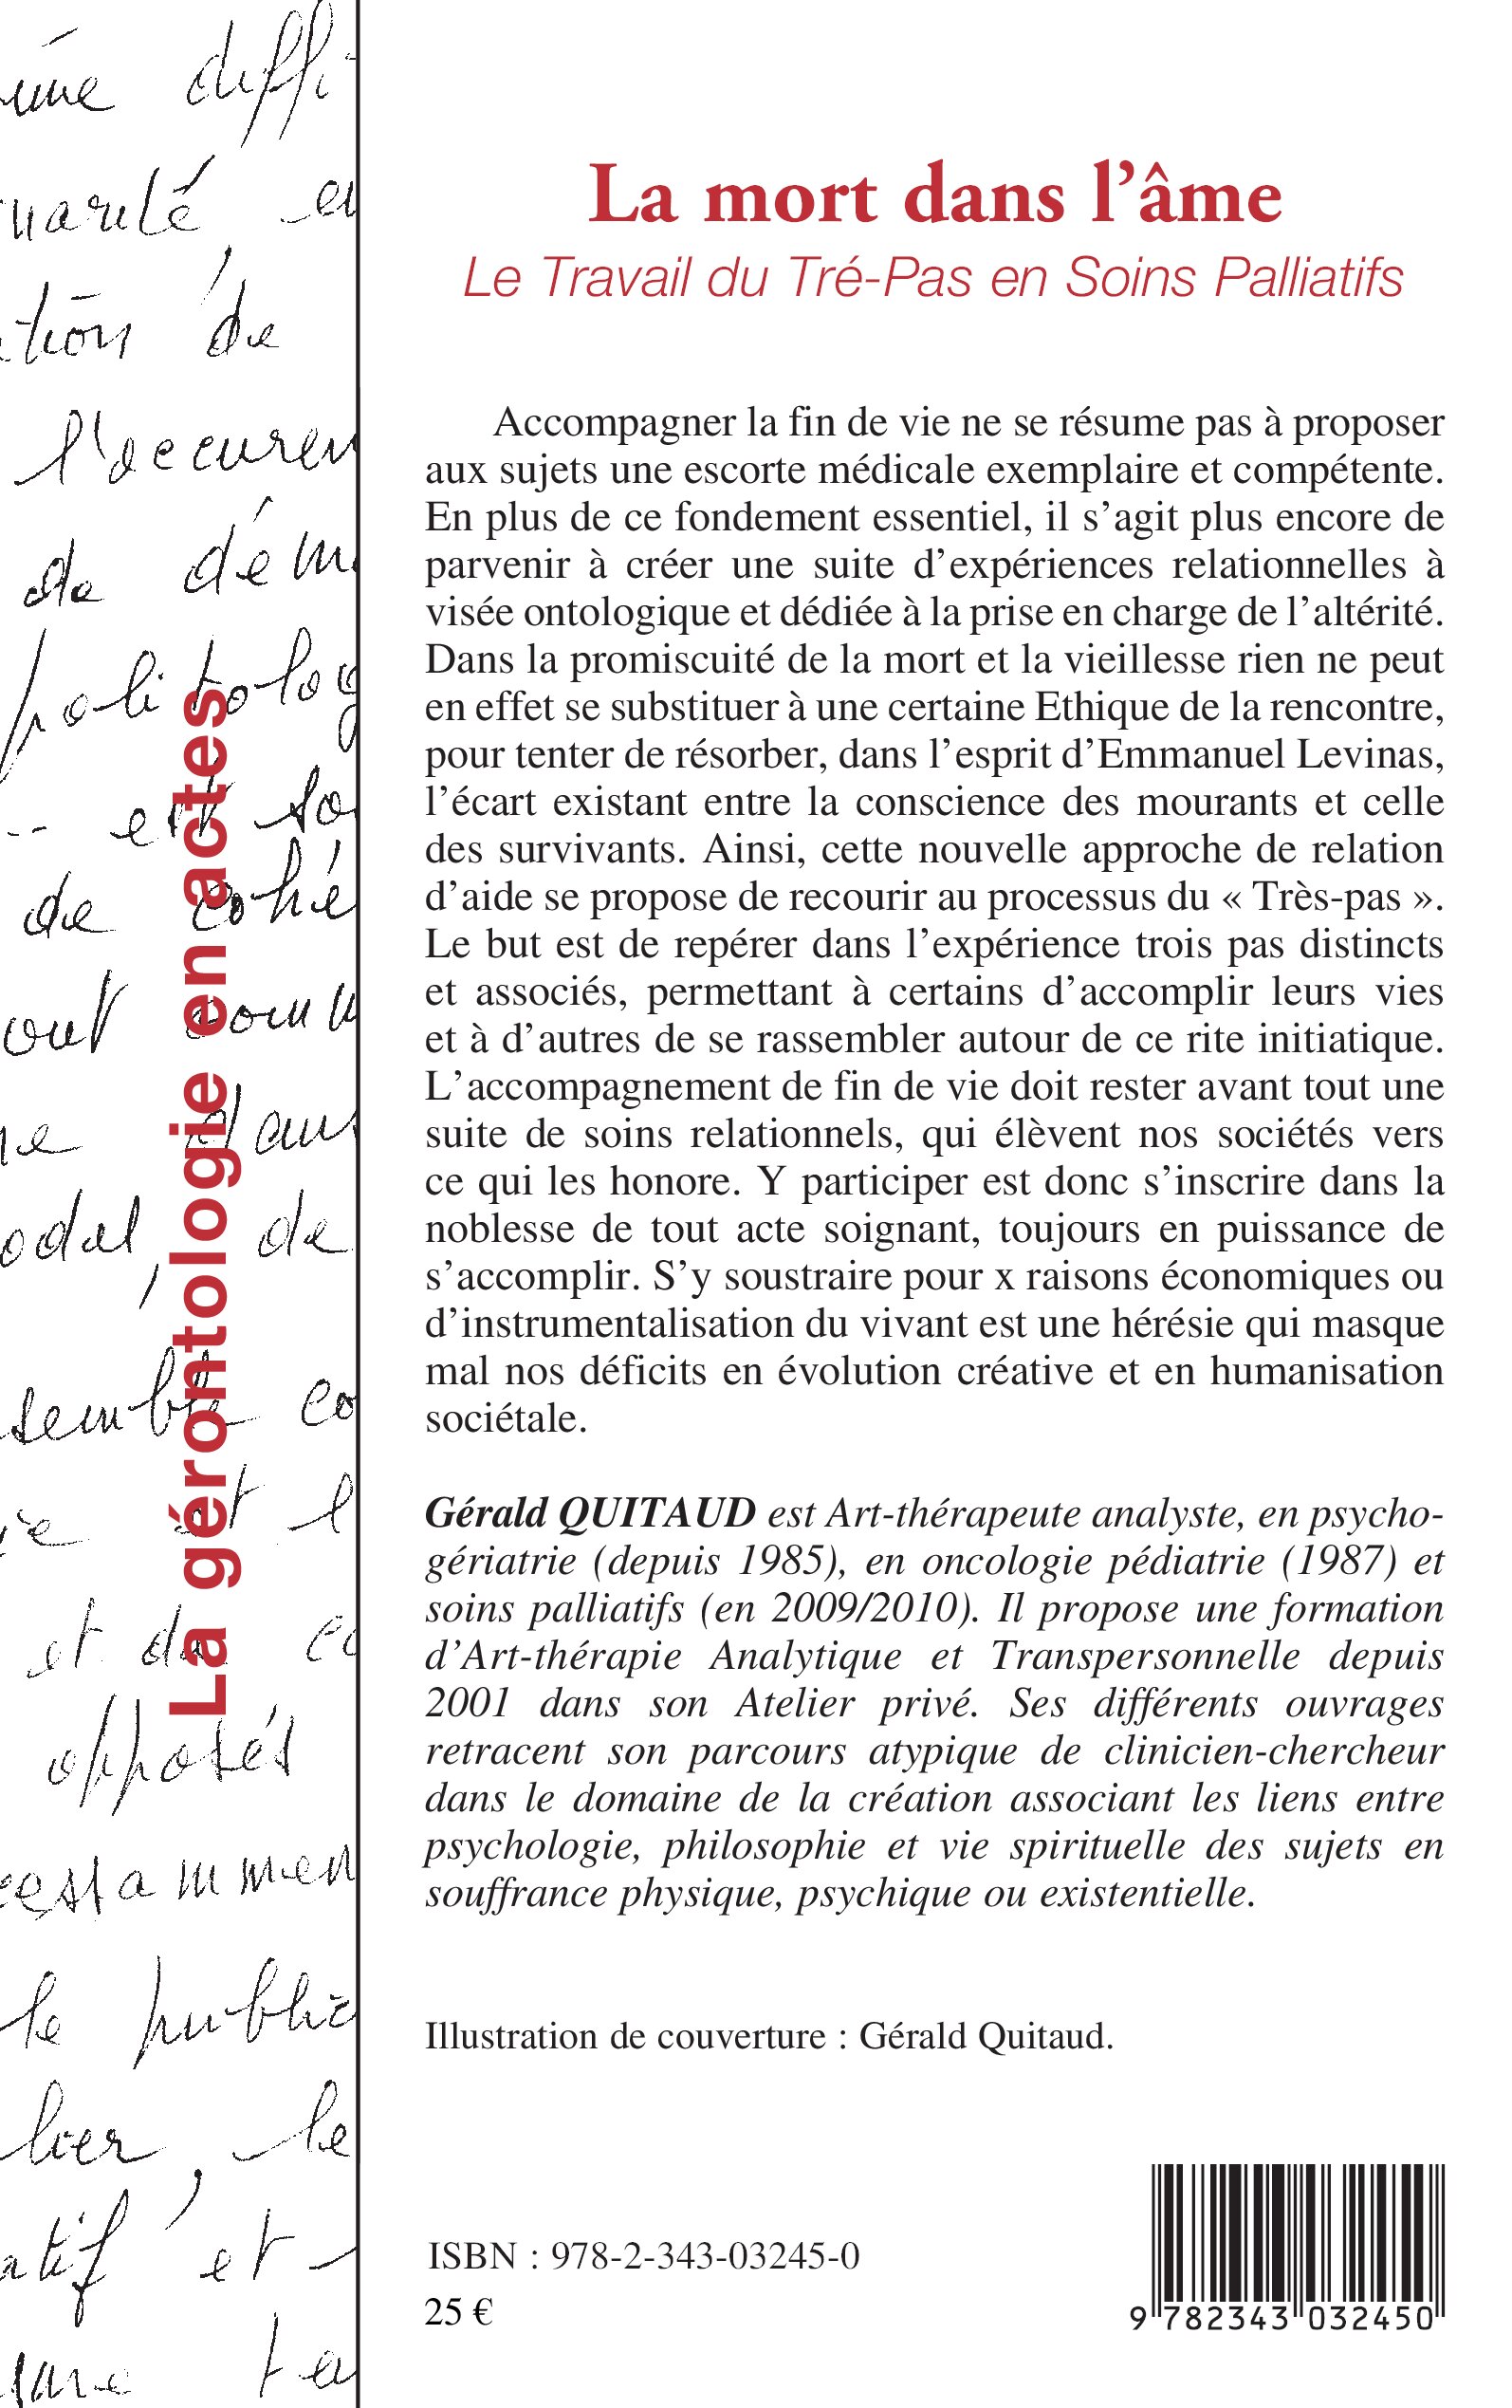 La mort dans l’âme
Le Travail du Tré-Pas en Soins Palliatifs
Accompagner la fin de vie ne se résume pas à proposer
aux sujets une escorte médicale exemplaire et compétente.
En plus de ce fondement essentiel, il s’agit plus encore de
parvenir à créer une suite d’expériences relationnelles à
visée ontologique et dédiée à la prise en charge de l’altérité.
Dans la promiscuité de la mort et la vieillesse rien ne peut
en effet se substituer à une certaine Ethique de la rencontre,
pour tenter de résorber, dans l’esprit d’Emmanuel Levinas,
l’écart existant entre la conscience des mourants et celle
des survivants. Ainsi, cette nouvelle approche de relation
d’aide se propose de recourir au processus du « Très-pas ».
Le but est de repérer dans l’expérience trois pas distincts
et associés, permettant à certains d’accomplir leurs vies
et à d’autres de se rassembler autour de ce rite initiatique.
L’accompagnement de fin de vie doit rester avant tout une
suite de soins relationnels, qui élèvent nos sociétés vers
ce qui les honore. Y participer est donc s’inscrire dans la
noblesse de tout acte soignant, toujours en puissance de
s’accomplir. S’y soustraire pour x raisons économiques ou
d’instrumentalisation du vivant est une hérésie qui masque
mal nos déficits en évolution créative et en humanisation
sociétale.
Gérald QUITAUD est Art-thérapeute analyste, en psycho-
gériatrie (depuis 1985), en oncologie pédiatrie (1987) et
soins palliatifs (en 2009/2010). Il propose une formation
d’Art-thérapie Analytique et Transpersonnelle depuis
2001 dans son Atelier privé. Ses différents ouvrages
retracent son parcours atypique de clinicien-chercheur
dans le domaine de la création associant les liens entre
psychologie, philosophie et vie spirituelle des sujets en
souffrance physique, psychique ou existentielle.
Illustration de couverture : Gérald Quitaud.
ISBN : 978-2-343-03245-0
25 €
9 782343 032450
La gérontologie en actes
diffi
de
de
de
dans
de
et
opposés
le public
le
et